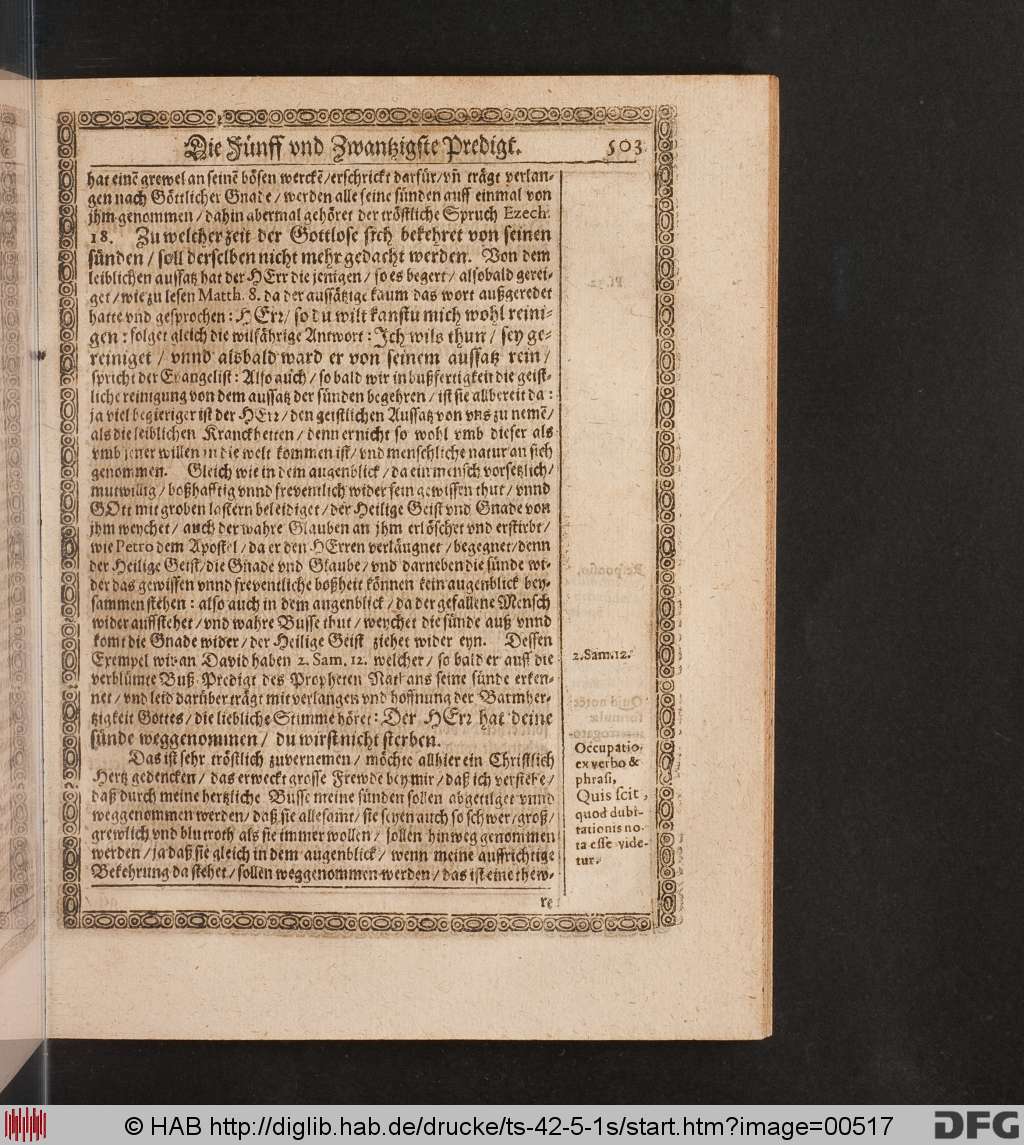 Die Fünff vnd Zwantzigste Predigt. 503
hat einē grewel an seinē bösen werckē/erschrickt darfür/vñ trägt verlan-
gen nach Göttlicher Gnade/werden alle seine sünden auff einmal von
jhm genommen/dahin abermal gehöret der tröstliche Spruch Ezech.
18. Zu welcher zeit der Gottlose sich bekehret von seinen
sünden/soll derselben nicht mehr gedacht werden. Von dem
leiblichen aussatz hat der HErr die jenigen/so es begert/alsobald gerei-
get/wie zu lesen Matth. 8. da der aussätzige kaum das wort außgeredet
hatte vnd gesprochen: HErr/so du wilt kanstu mich wohl reini-
gen: folget gleich die wilfährige Antwort: Ich wils thun/sey ge-
reiniget/vnnd alsbald ward er von seinem aussatz rein/
spricht der Evangelist: Also auch/so bald wir in bußfertigkeit die geist-
liche reinigung von dem aussatz der sünden begehren/ist sie allbereit da:
ja viel begieriger ist der HErr/den geistlichen Aussatz von vns zu nemē/
als die leiblichen Kranckheiten/denn er nicht so wohl vmb dieser als
vmb jener willen in die welt kommen ist/vnd menschliche natur an sich
genommen. Gleich wie in dem augenblick/da ein mensch vorsetzlich/
mutwillig/boßhafftig vnnd freventlich wider sein gewissen thut/vnnd
GOtt mit groben lastern beleidiget/der Heilige Geist vnd Gnade von
jhm weychet/auch der wahre Glauben an jhm erlöschet vnd erstirbt/
wie Petro dem Apostel/da er den HErren verläugnet/begegnet/denn
der Heilige Geist/die Gnade vnd Glaube/vnd darneben die sünde wi-
der das gewissen vnnd freventliche boßheit können kein augenblick bey-
sammen stehen: also auch in dem augenblick/da der gefallene Mensch
wider auffstehet/vnd wahre Busse thut/weychet die sünde auß vnnd
komt die Gnade wider/der Heilige Geist ziehet wider eyn. Dessen
Exempel wir an David haben 2. Sam. 12. welcher/so bald er auff die
verblümte Buß Predigt des Propheten Nathans seine sünde erken-
net/vnd leid darüber trägt mit verlangen vnd hoffnung der Barmher-
tzigkeit Gottes/die liebliche Stimme höret: Der HErr hat deine
sünde weggenommen/du wirst nicht sterben.
Das ist sehr tröstlich zuvernemen/möchte allhier ein Christlich
Hertz gedencken/das erweckt grosse Frewde bey mir/daß ich verstehe/
daß durch meine hertzliche Busse meine sünden sollen abgetilget vnnd
weggenommen werden/daß sie allesamt/sie seyen auch so schwer/groß/
grewlich vnd blutroth als sie immer wollen/sollen hinweg genommen
werden/ja daß sie gleich in dem augenblick/wenn meine auffrichtige
Bekehrung da stehet/sollen weggenommen werden/das ist eine thew-
re
2. Sam. 12.
Occupatio
ex verbo &
phrasi,
Quis scit,
quod dubi-
tationis no-
ta esse vide-
tur.
© HAB http://diglib.hab.de/drucke/ts-42-5-1s/start.htm?image=00517
DFG